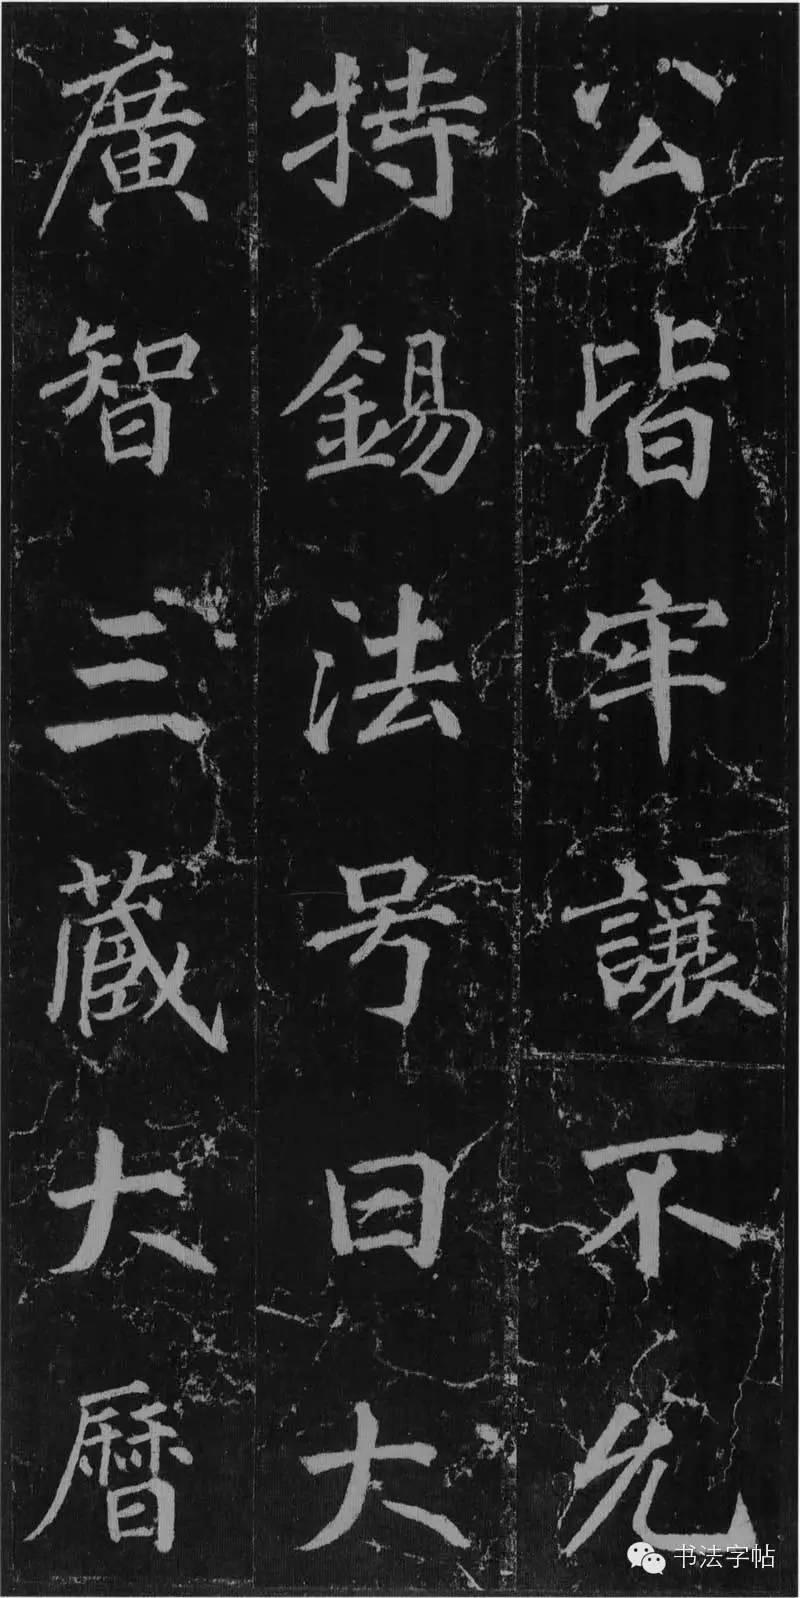 公皆牢讓不允
特錫法号曰大
廣智三藏大曆
书法字帖